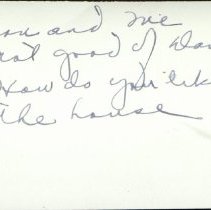 and me
not good of
How do you lik
the house